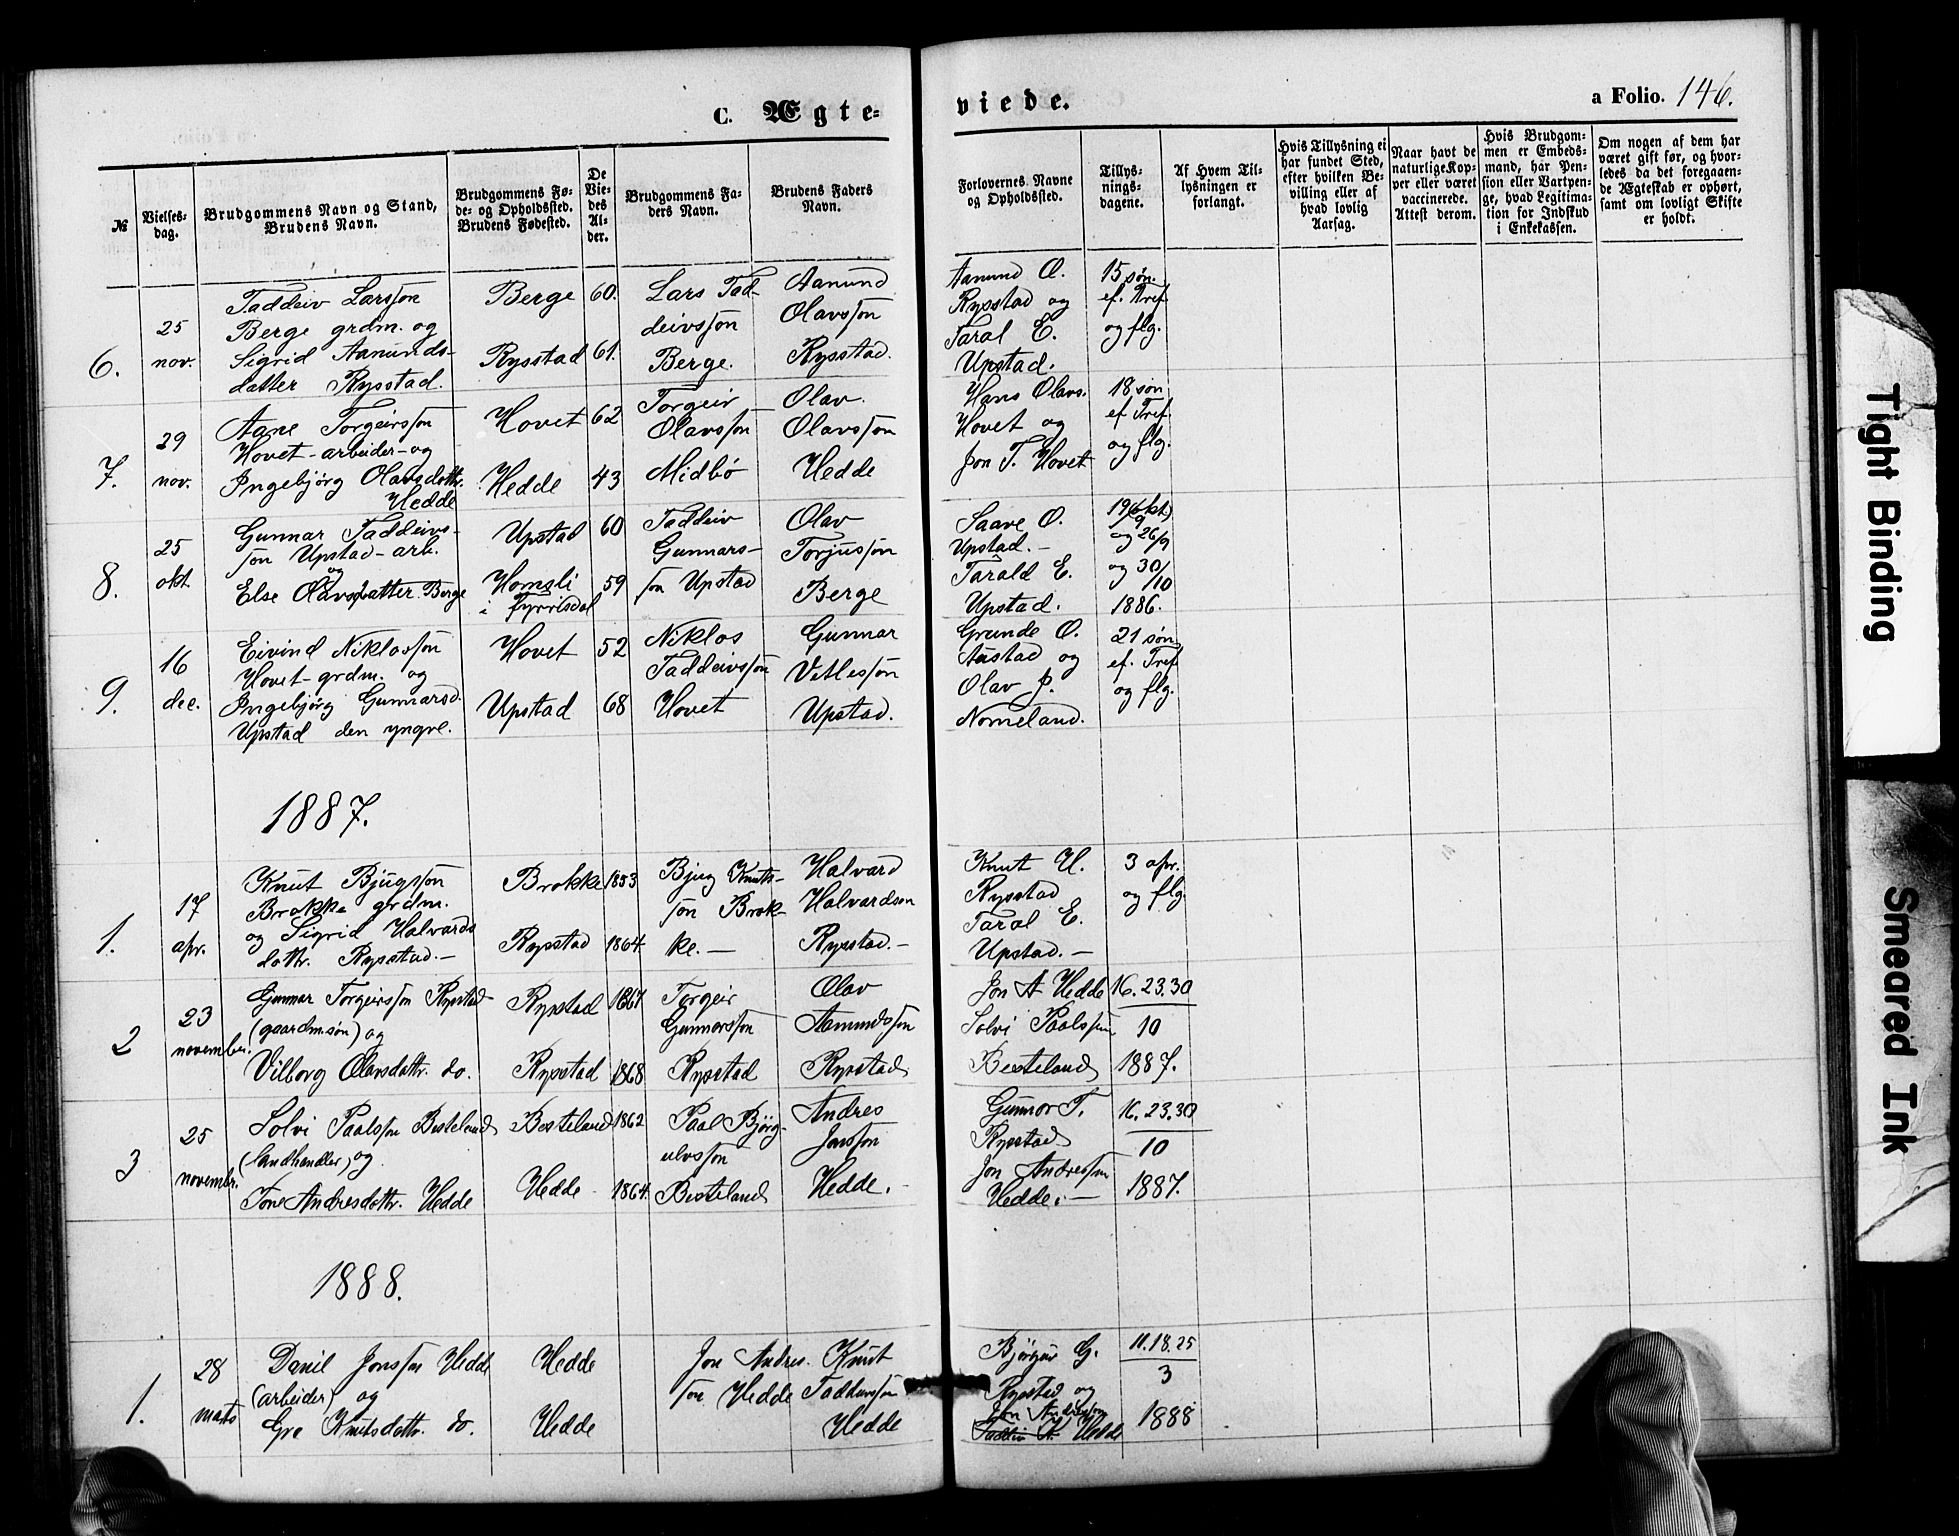 C. Ægte-
viede.
a Folio. 146.
№
Vielses-
dag.
Brudgommens Navn og Stand,
Brudens Navn.
Brudgommens Fø-
de- og Opholdssted.
Brudens Fødested.
De
Vie-
des
Al-
der.
Brudgommens Fa-
ders Navn.
Brudens Faders
Navn.
Forlovernes Navne
og Opholdssted.
Tillys-
nings-
dagene.
Af Hvem Til-
lysningen er
forlangt.
Hvis Tillysning ei
har fundet Sted,
efter hvilken Be-
villing eller af
hvad lovlig
Aarsag.
Naar havt de
naturlige Kop-
per eller været
vaccinerede.
Attest derom.
Hvis Brudgom-
men er Embeds-
mand, har Pen-
sion eller Vartpen-
ge, hvad Legitima-
tion for Indskud
i Enkekassen.
Om nogen af dem har
været gift før, og hvor-
ledes da det foregaaen-
de Ægteskab er ophørt,
samt om lovligt Skifte
er holdt.
6.
25
nov.
Taddeiv Larsson
Berge grdm. og
Sigrid Aamunds-
datter Rysstad.
Berge
Rysstad
60.
61.
Lars Tad-
deivsson
Berge.
Aamund
Olavsson
Rysstad.
Aamund O.
Rysstad og
Taral E.
Upstad.
15 søn.
ef. Tref.
og flg.
7.
29
nov.
Aane Torgeirsson
Hovet - arbeider - og
Ingebjørg Olavsdottr.
Hedde
Hovet
Hedde
62
43
Torgeir
Olavsson
Midbø
Olav
Olavsson
Hedde
Hans Olavs.
Hovet og
Jon T. Hovet
18 søn
ef. Tref.
og flg.
8.
25
okt
Gunnar Taddeivs-
son Upstad - arb.
og
Else Olavsdatter Berge
Upstad
Homsli
i Fyrrisdal
60
59
Taddeiv
Gunnars-
son Upstad
Olav
Torjusson
Berge
Saave O.
Upstad. -
Tarald E.
Upstad.
og 26/9
og 30/
10
1886.
9.
16
dec.
Eivind Niklosson
Hovet - grdm. og
Ingebjørg Gunnarsd.
Upstad den yngre.
Hovet
Upstad
52
68
Niklos
Taddeivsson
Hovet
Gunnar
Vetlesson
Upstad.
Grunde O.
Austad og
Olav J.
Nomeland.
21 søn
ef. Tref
og flg.
1887.
1.
17
apr.
Knut Bjugsson
Brokke grdm.
og Sigrid Halvards
dottr. Rysstad. -
Brokke
Rysstad
1853
1864.
Bjug Knuts-
son Brok-
ke. -
Halvard
Halvardson
Rysstad. -
Knut H.
Rysstad
Taral E.
Upstad. -
3 apr.
og flg.
2
23
november.
Gunnar Torgeirsson Rysstad
(gaardm.søn) og
Vilborg Olavsdottr. do.
Rysstad
Rysstad
1867
1868
Torgeir
Gunnarsson
Rysstad
Olav
Aamundsson
Rysstad
Jon A Hedde
Solvi Paalsson
Besteland
16. 23. 30
10
1887.
3
25
novembr.
Solvi Paalsson Besteland
(landhandler) og
Tone Andresdottr. Hedde
Besteland
Hedde
1862
1864.
Paal Bjørg-
ulvsson
Besteland
Andres
Jonsson
Hedde.
Gunnar T.
Rysstad
Jon Andresson
Hedde. -
16. 23. 30
10
1887.
1888.
1.
28
marts
Danil Jonsson Hedde
(arbeider) og
Gro Knutsdottr. do.
Hedde
Hedde
Jon Andres-
son Hedde
Knut
Taddeivsson
Hedde
G.
Rysstad og
Jon Andresson
Taddeiv K. Hedde
11. 18. 25
3
1888
Tight Binding
Smeared Ink